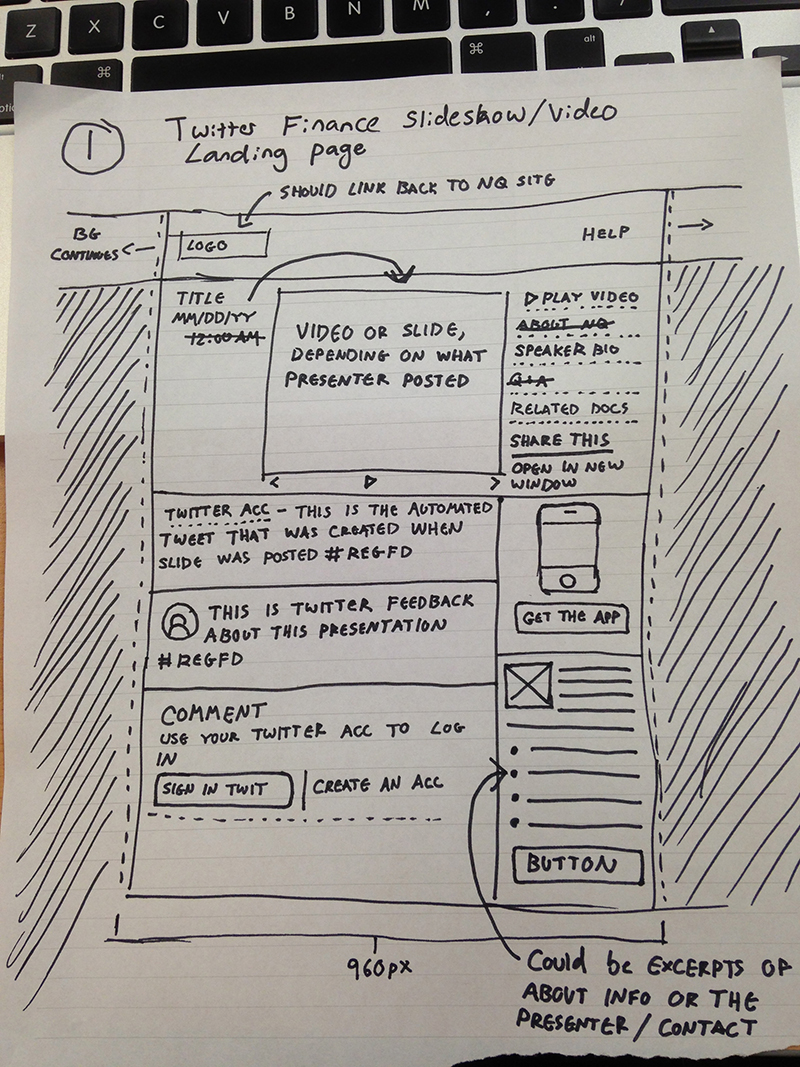 Z X C V B N M , . /
⌘ ⌘ alt
1
Twitter Finance Slideshow/Video
Landing page
SHOULD LINK BACK TO NQ SITE
BG
CONTINUES
LOGO
HELP
TITLE
MM/DD/YY
12:00 AM
VIDEO OR SLIDE,
DEPENDING ON WHAT
PRESENTER POSTED
PLAY VIDEO
ABOUT NQ
SPEAKER BIO
Q+A
RELATED DOCS
SHARE THIS
OPEN IN NEW
WINDOW
TWITTER ACC - THIS IS THE AUTOMATED
TWEET THAT WAS CREATED WHEN
SLIDE WAS POSTED #REGFD
THIS IS TWITTER FEEDBACK
ABOUT THIS PRESENTATION
#REGFD
GET THE APP
COMMENT
USE YOUR TWITTER ACC TO LOG
IN
SIGN IN TWIT
CREATE AN ACC
BUTTON
960px
Could be EXCERPTS OF
ABOUT INFO OR THE
PRESENTER/CONTACT